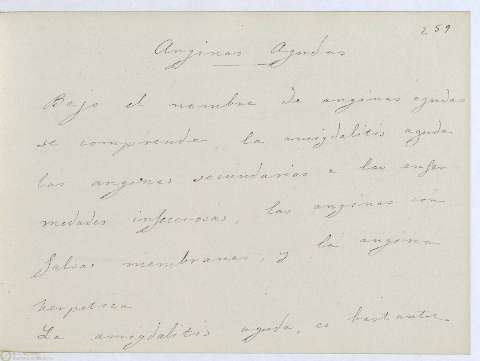 259
Anginas Agudas
Bajo el nombre de anginas agudas
se comprende, la amigdalitis aguda
las anginas secundarias a las enfer
medades infecciosas, las anginas con
falsas membranas, y la angina
herpetica
La amigdalitis aguda, es bastante